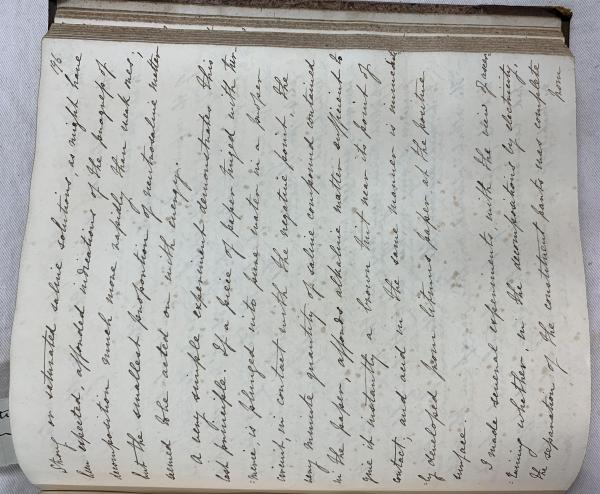 76.
Strong or saturated saline solutions, as might have
been expected afforded indications of the progress of
decomposition much more rapidly than weak ones;
but the smallest proportion of neutrosaline matter
seemed to be acted on with energy.
A very simple experiment demonstrates this
last principle. If a piece of paper tinged with tur-
meric is plunged into pure water in a proper
circuit, in contact with the negative point, the
very minute quantity of saline compound contained
in the paper, affords alkaline matter sufficient to
give it instantly a brown tint near its point of
contact; and acid in the same manner is immediate
ly developed from litmus paper at the positive
surface.
I made several experiments with the view of ascer
taining whether, in the decompositions by electricity,
the separation of the constituent parts was complete
from